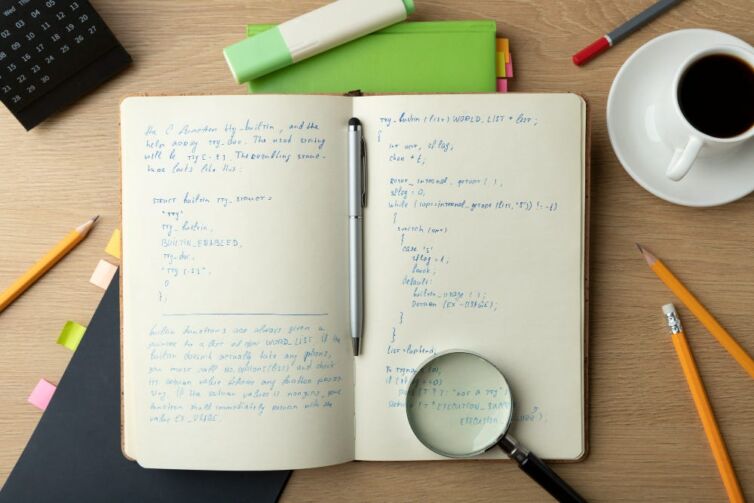 Wed Thu Fri Sat
02 03 04 05
10 11 12 13
20
27
28 29 30 31
the C function tty_builtin, and the
help array tty_doc. The
will be tty [-s]. The resulting struc-
ture looks like this:
struct builtin tty_struct =
"tty"
tty_builtin,
BUILTIN_ENABLED,
tty_doc,
"tty [-s]",
0
};
builtin functions are always given a
pointer to a list of WORD_LIST. If the
builtin doesn't actually take any options,
you must call no_options(list) and check
its return value before any further proces-
sing. If the return value is nonzero, your
function should immediately return with the
value EX_USAGE.
tty_builtin (list) WORD_LIST * list;
{
int opt, sflag;
char * t;
reset_internal_getopt ( );
sflag = 0;
while ((opt=internal_getopt (list, "s")) != -1)
{
switch (opt)
{
case 's':
sflag = 1;
break;
default:
builtin_usage ( );
return (EX_USAGE);
}
}
list = loptend;
"not a tty";
EXECUTION_